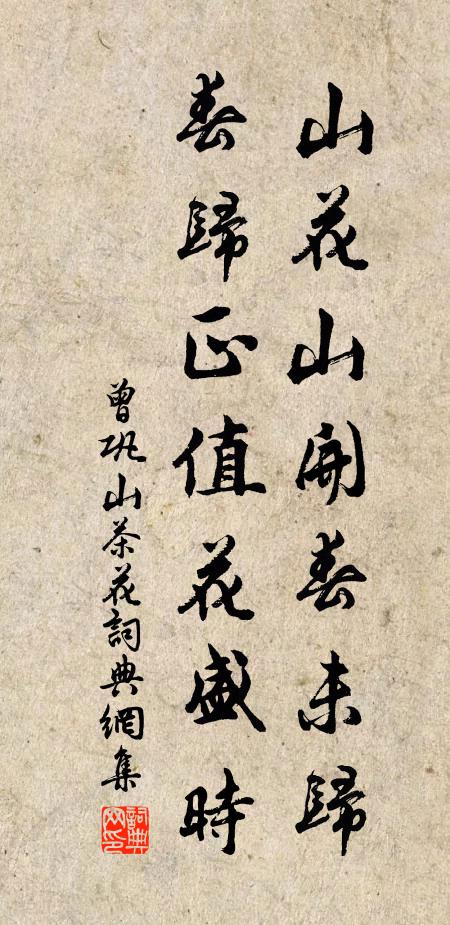 山花山開春未歸
春歸正值花盛時
曾鞏山茶花詞典網集
詞典網印